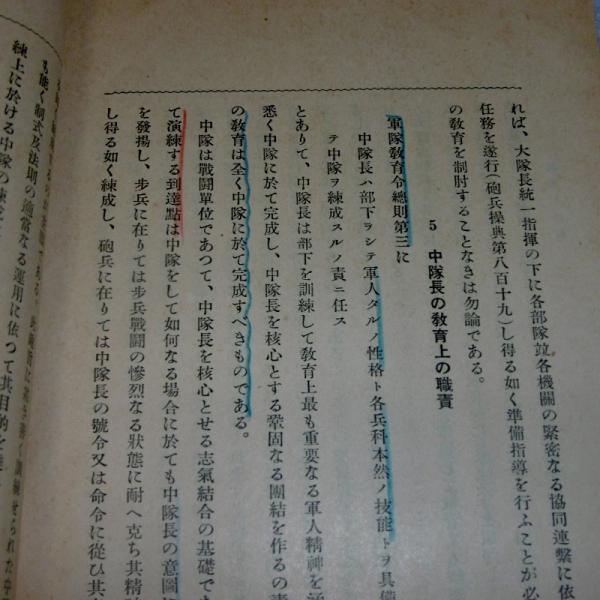 れば、大隊長統一指揮の下に各部隊竝各機關の緊密なる協同連繋に依
任務を遂行(砲兵操典第八百十九)し得る如く準備指導を行ふことが必
の教育を制肘することなきは勿論である。
5 中隊長の教育上の職責
軍隊教育令總則第三に
中隊長ハ部下ヲシテ軍人タルノ性格ト各兵科本然ノ技能トヲ具備
テ中隊ヲ練成スルノ責ニ任ス
とありて、中隊長は部下を訓練して教育上最も重要なる軍人精神を
悉く中隊に於て完成し、中隊長を核心とする鞏固なる團結を作るの責
の教育は全く中隊に於て完成すべきものである。
中隊は戰鬪單位であつて、中隊長を核心とせる志氣結合の基礎で
て演練する到達點は中隊をして如何なる場合に於ても中隊長の意圖
を發揚し、歩兵に在りては歩兵戰鬪の慘烈なる狀態に耐へ克ち其精
し得る如く練成し、砲兵に在りては中隊長の號令又は命令に從ひ其
も能く制式及法則の適當なる運用に依つて其目的を
練上に於ける中隊の